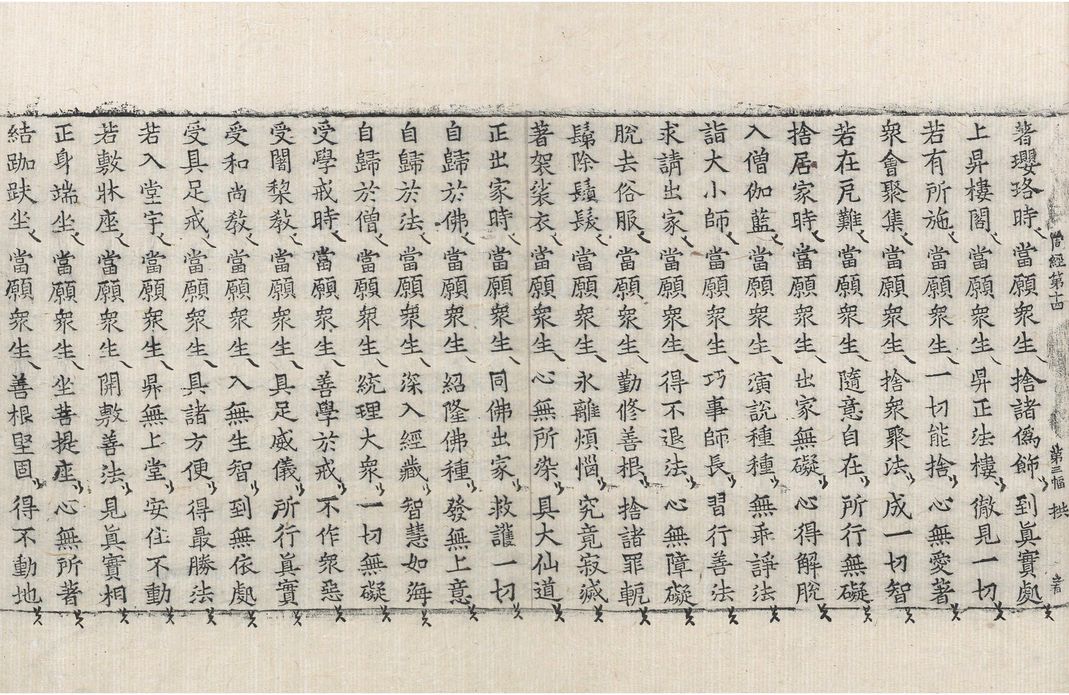 著瓔珞時 當願衆生 捨諸僞飾 到眞實處
周經第十四 第三幅 拱
上昇樓閣 當願衆生 昇正法樓 徹見一切
若有所施 當願衆生 一切能捨 心無愛著
衆會聚集 當願衆生 捨衆聚法 成一切智
若在厄難 當願衆生 隨意自在 所行無礙
捨居家時 當願衆生 出家無礙 心得解脫
入僧伽藍 當願衆生 演說種種 無乖諍法
詣大小師 當願衆生 巧事師長 習行善法
求請出家 當願衆生 得不退法 心無障礙
脫去俗服 當願衆生 勤修善根 捨諸罪軛
鬀除鬚髮 當願衆生 永離煩惱 究竟寂滅
著袈裟衣 當願衆生 心無所染 具大仙道
正出家時 當願衆生 同佛出家 救護一切
自歸於佛 當願衆生 紹隆佛種 發無上意
自歸於法 當願衆生 深入經藏 智慧如海
自歸於僧 當願衆生 統理大衆 一切無礙
受學戒時 當願衆生 善學於戒 不作衆惡
受闍梨教 當願衆生 具足威儀 所行眞實
受和尚教 當願衆生 入無生智 到無依處
受具足戒 當願衆生 具諸方便 得最勝法
若入堂宇 當願衆生 昇無上堂 安住不動
若敷牀座 當願衆生 開敷善法 見眞實相
正身端坐 當願衆生 坐菩提座 心無所著
結跏趺坐 當願衆生 善根堅固 得不動地